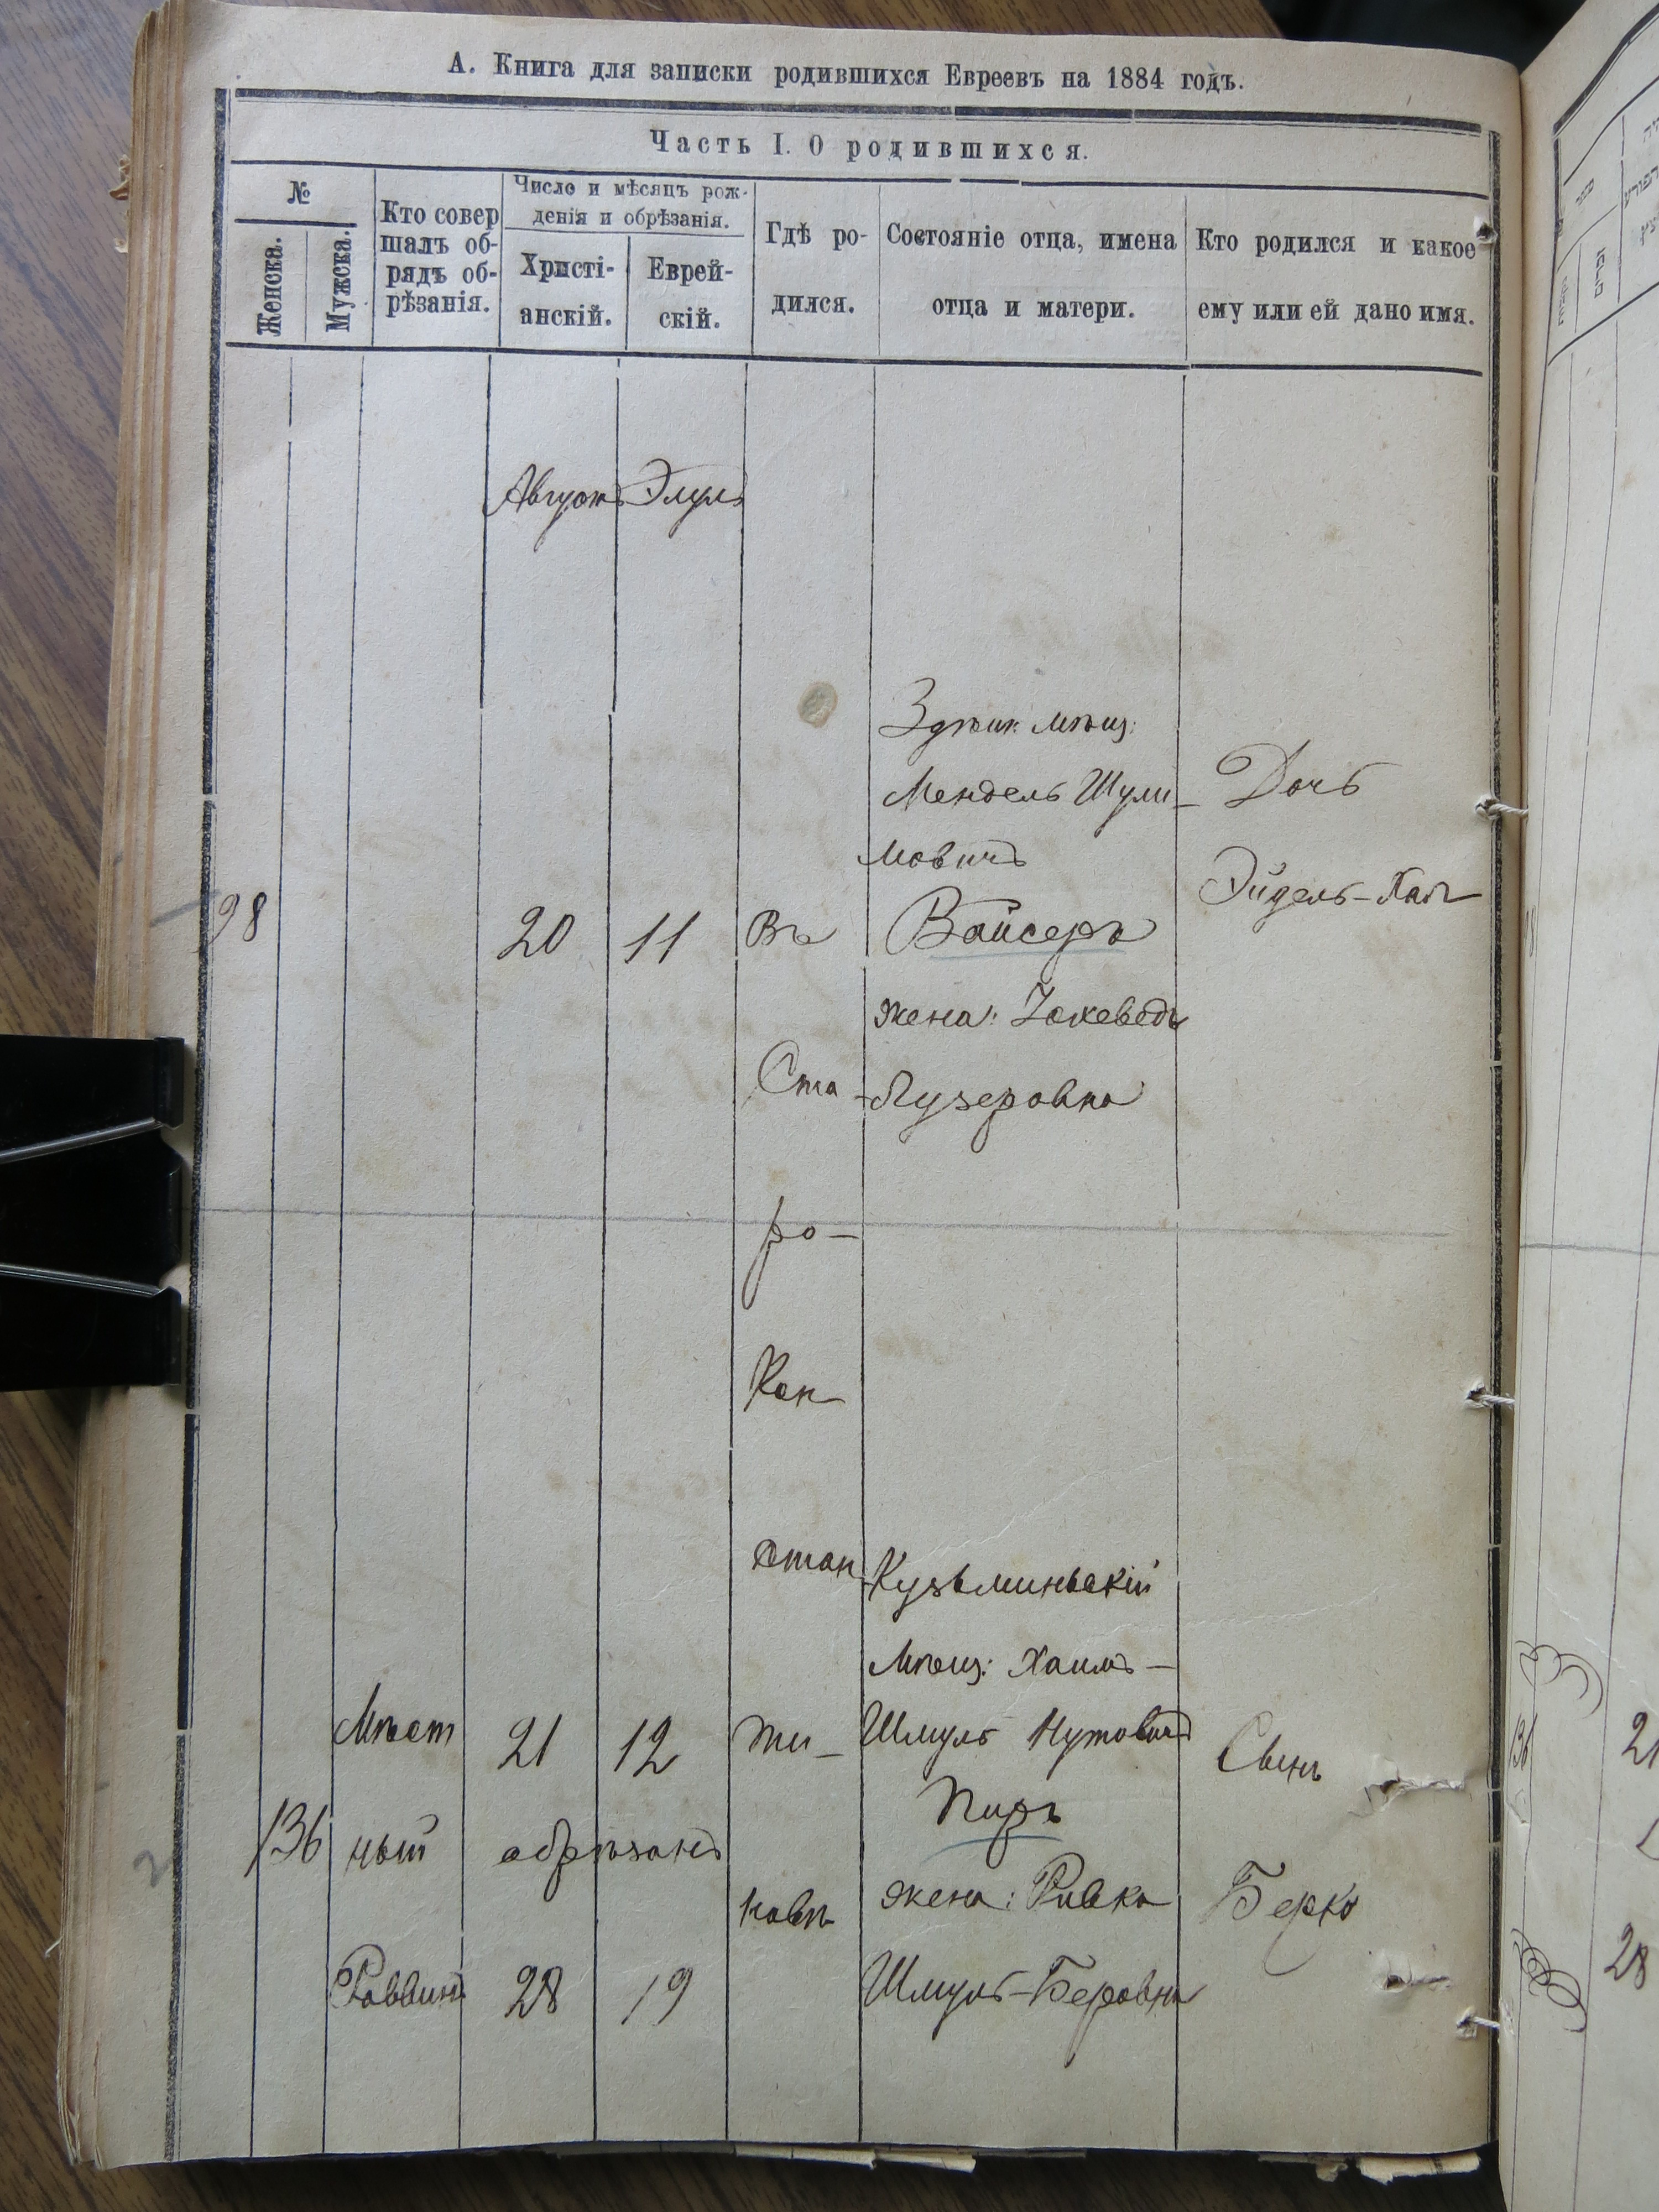 А. Книга для записки родившихся Евреевъ на 1884 годъ.
Часть I. О родившихся.
№
Женска.
Мужска.
Кто совер
шалъ об-
рядъ об-
рѣзанія.
Число и мѣсяцъ рож-
денія и обрѣзанія.
Христі-
анскій.
Еврей-
скій.
Гдѣ ро-
дился.
Состояніе отца, имена
отца и матери.
Кто родился и какое
ему или ей дано имя.
Августъ Элулъ
98
20
11
Въ
Ста-
ро-
Кон-
стан
ти-
новѣ
Здѣшн: мѣщ:
Мендель Шули-
мовичъ
Вайсеръ
жена: Іохеведъ
Лузеровна
Дочь
Эйдель-Хая
136
Мѣст
ный
Раввинъ
21
12
обрѣзанъ
28
19
Кузьминьскій
Мѣщ: Хаимъ-
Шмуль Нутовичъ
Пизъ
жена: Ривка
Шмуль-Беровна
Сынъ
Берко
136
21
28